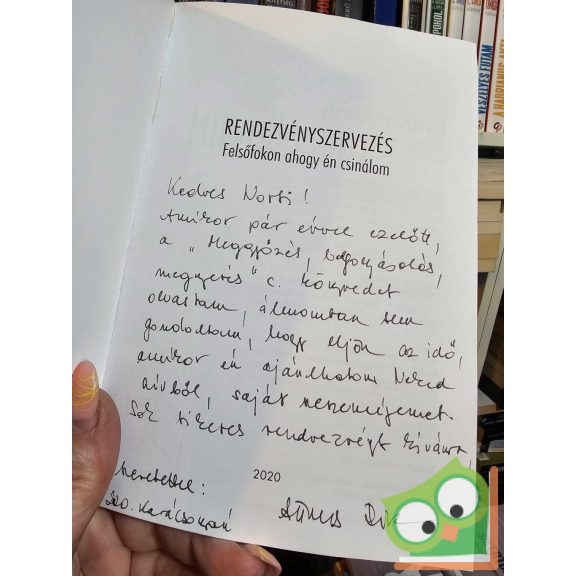 RENDEZVÉNYSZERVEZÉS
Felsőfokon ahogy én csinálom
Kedves Norbi!
Amikor pár évvel ezelőtt,
a "Meggyőzés, befolyásolás,
megnyerés" c. könyvedet
olvastam, álmomban sem
gondoltam, hogy eljön az idő,
amikor én ajánlhatom Neked
szívből, saját szerzeményemet.
Sok sikeres rendezvényt kívánva
szeretettel:
2020
2020. Karácsonyán
VESZÉLYES FUTAM
A HADRIANUS-AKTA